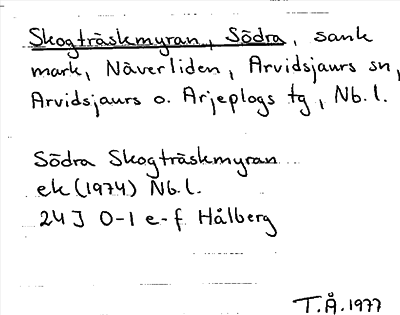 Skogträskmyran, Södra, sank
mark, Näverliden, Arvidsjaurs sn,
Arvidsjaurs o. Arjeplogs tg, Nb.l.
Södra Skogträskmyran
ek (1974) Nb.l.
24J 0-1 e-f Hålberg
T.Å. 1977